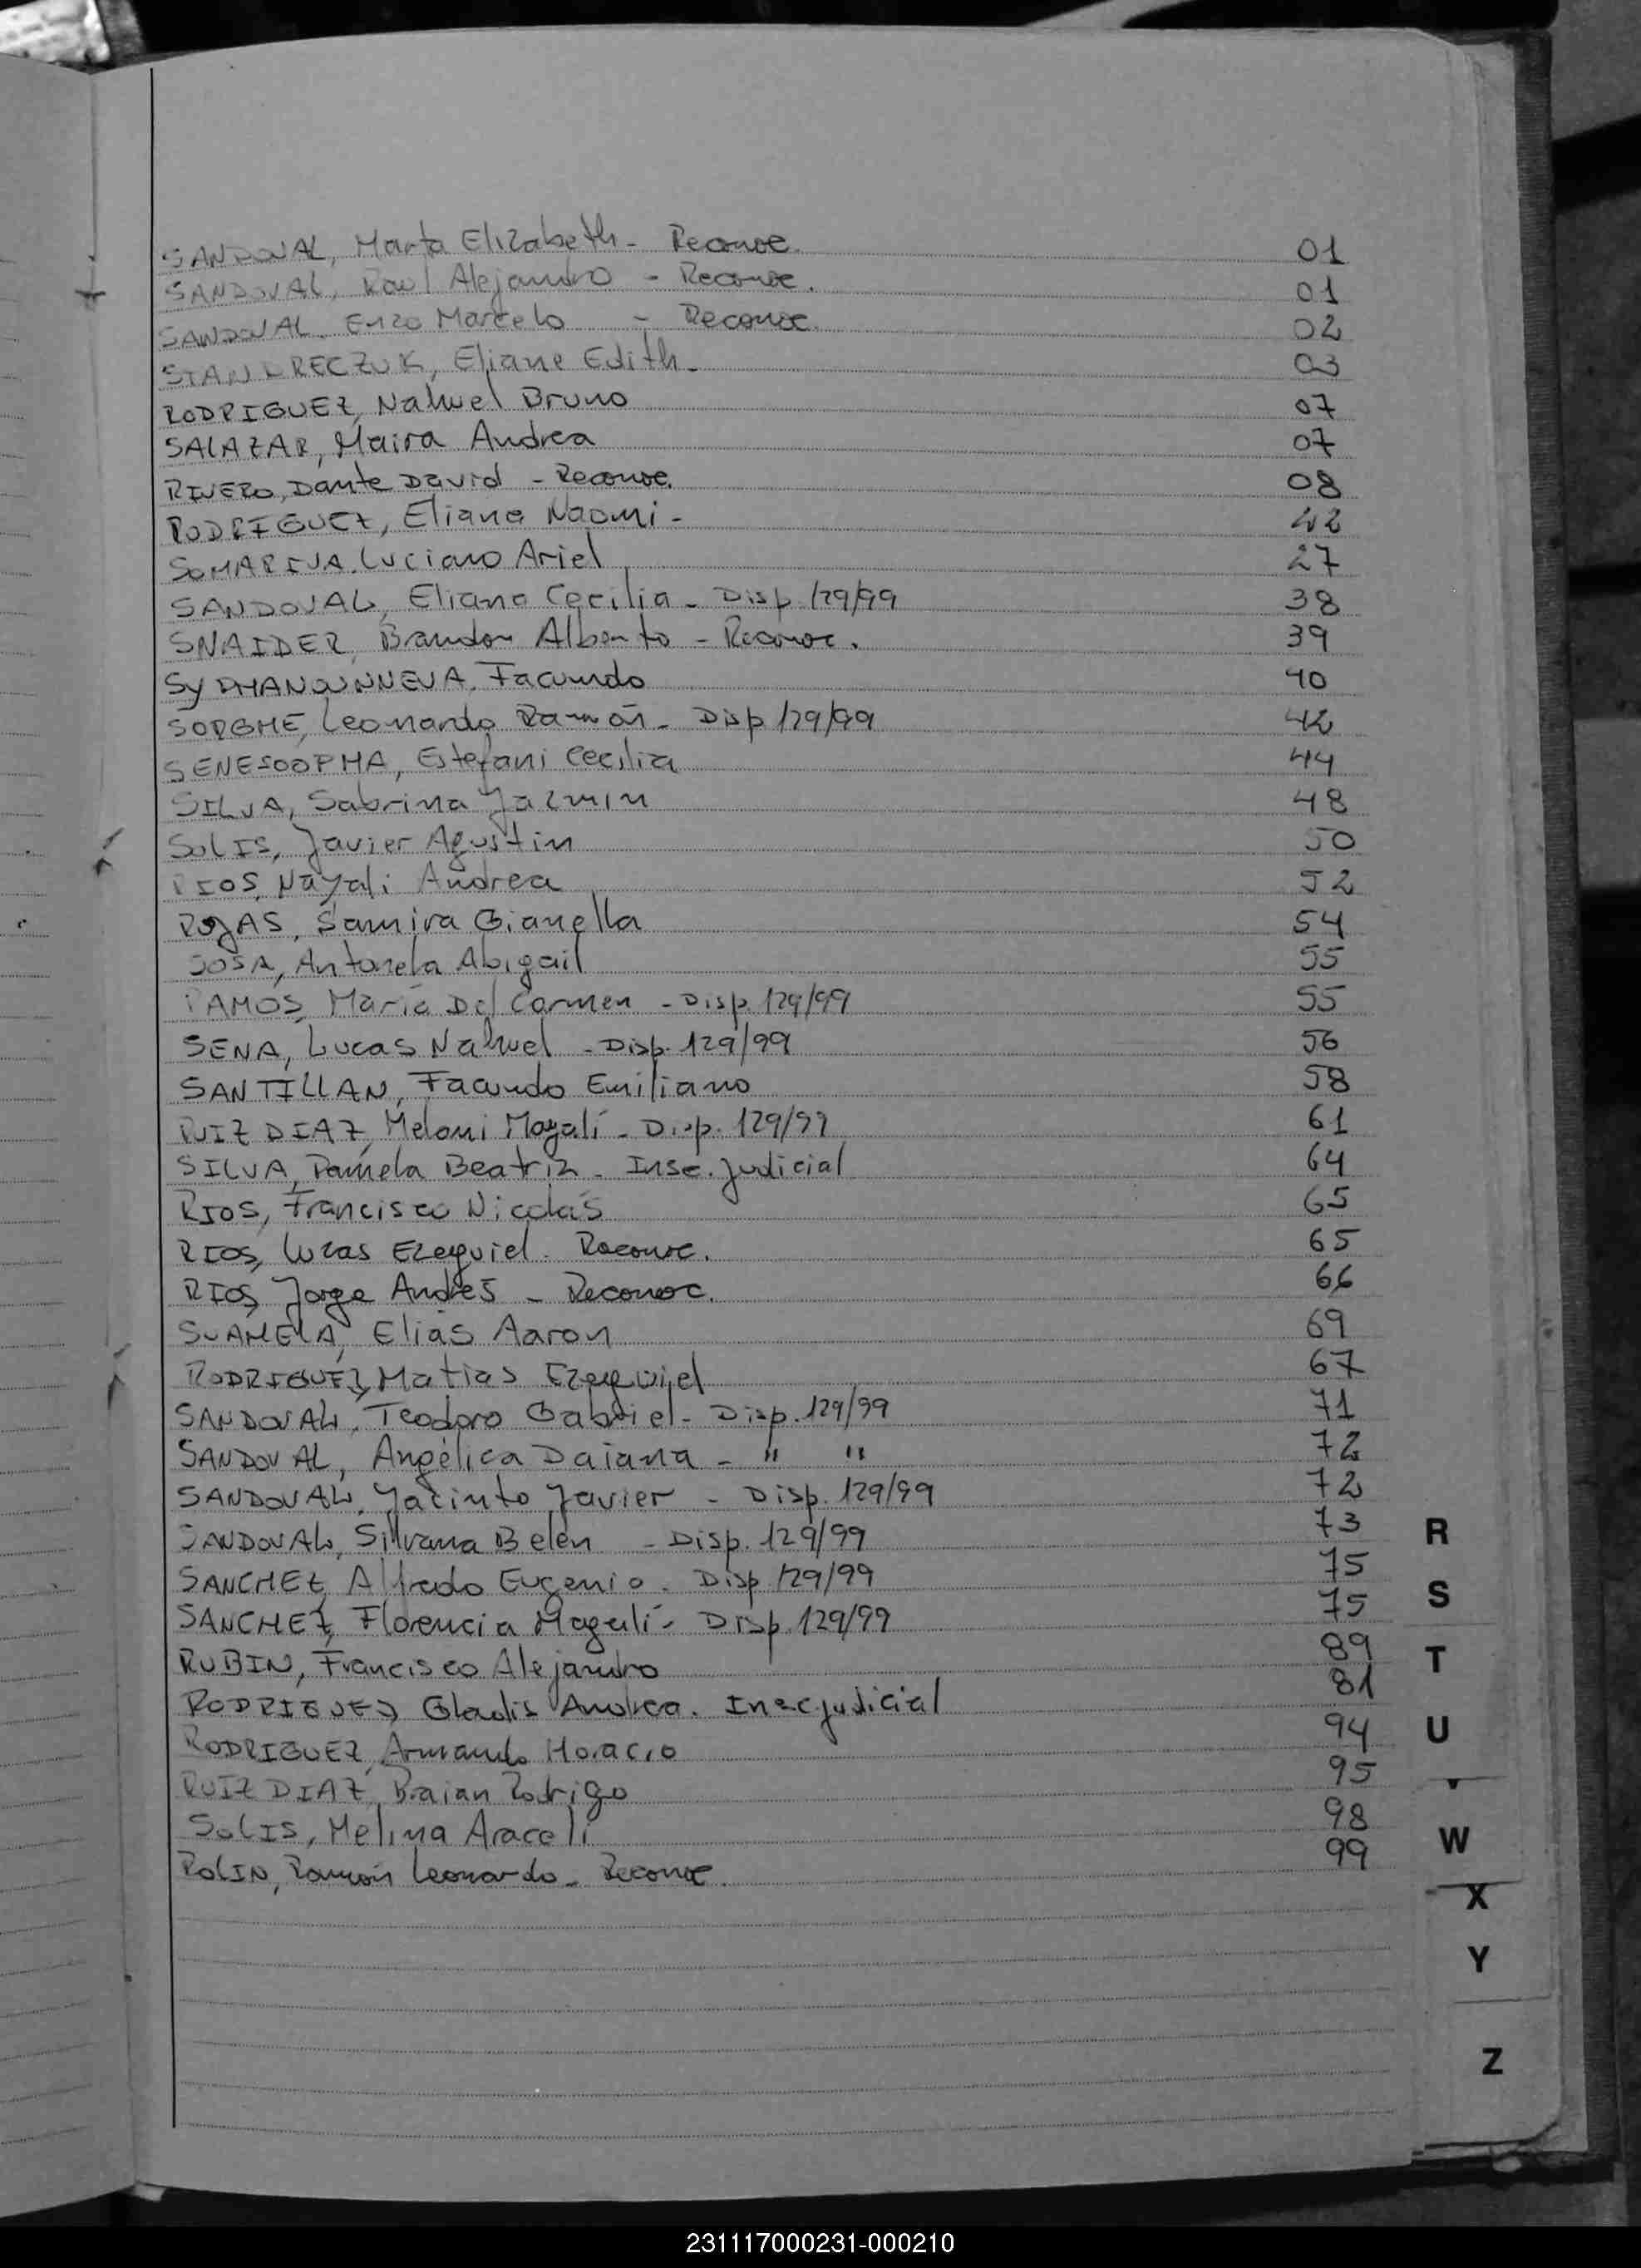 SANDOVAL, Marta Elizabeth - Reconoc. 01
SANDOVAL, Raul Alejandro - Reconoc. 01
SANDOVAL, Enzo Marcelo - Reconoc. 02
Eliane Edith - 03
RODRIGUEZ, Nahuel Bruno 07
SALAZAR, Maira Andrea 07
RIVERO, Dante David - Reconoc. 08
RODRIGUEZ, Eliana Naomi - 42
SOMARIVA, Luciano Ariel 27
SANDOVAL, Eliana Cecilia - Disp. 129/99 38
SNAIDER, Brandon Alberto - Reconoc. 39
Facundo 40
Leonardo Ramón - Disp 129/99 42
Estefani Cecilia 44
SILVA, Sabrina Jazmin 48
SOLIS, Javier Agustin 50
RIOS, Nayali Andrea 52
ROJAS, Samira Gianella 54
SOSA, Antonela Abigail 55
RAMOS, Maria Del Carmen - Disp. 129/99 55
SENA, Lucas Nahuel - Disp. 129/99 56
SANTILLAN, Facundo Emiliano 58
RUIZ DIAZ, Melani Magalí - Disp. 129/99 61
SILVA, Pamela Beatriz - Insc. Judicial 64
RIOS, Francisco Nicolás 65
RIOS, Lucas Ezequiel - Reconoc. 65
RIOS, Jorge Andrés - Reconoc. 66
Elias Aaron 69
RODRIGUEZ, Matias Ezequiel 67
SANDOVAL, Teodoro Gabriel - Disp. 129/99 71
SANDOVAL, Angélica Daiana - " " 72
SANDOVAL, Jacinto Javier - Disp. 129/99 72
SANDOVAL, Silvana Belén - Disp. 129/99 73
SANCHEZ, Alfredo Eugenio - Disp 129/99 75
SANCHEZ, Florencia Magalí - Disp. 129/99 75
RUBIN, Francisco Alejandro 89
RODRIGUEZ, Gladis Andrea. Insc. Judicial 81
RODRIGUEZ, Armando Horacio 94
RUIZ DIAZ, Braian Rodrigo 95
SOLIS, Melina Araceli 98
ROLIN, Ramón Leonardo - Reconoc. 99
R
S
T
U
W
X
Y
Z
231117000231-000210